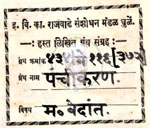 इ. वि. का. राजवाडे संशोधन मंडळ धुळें.
हस्त लिखित ग्रंथ संग्रह :
ग्रंथ क्रमांक ४३४/वे ११६ (३७२)
ग्रंथ नाम पंचीकरण.
विषय म. वेदांत.